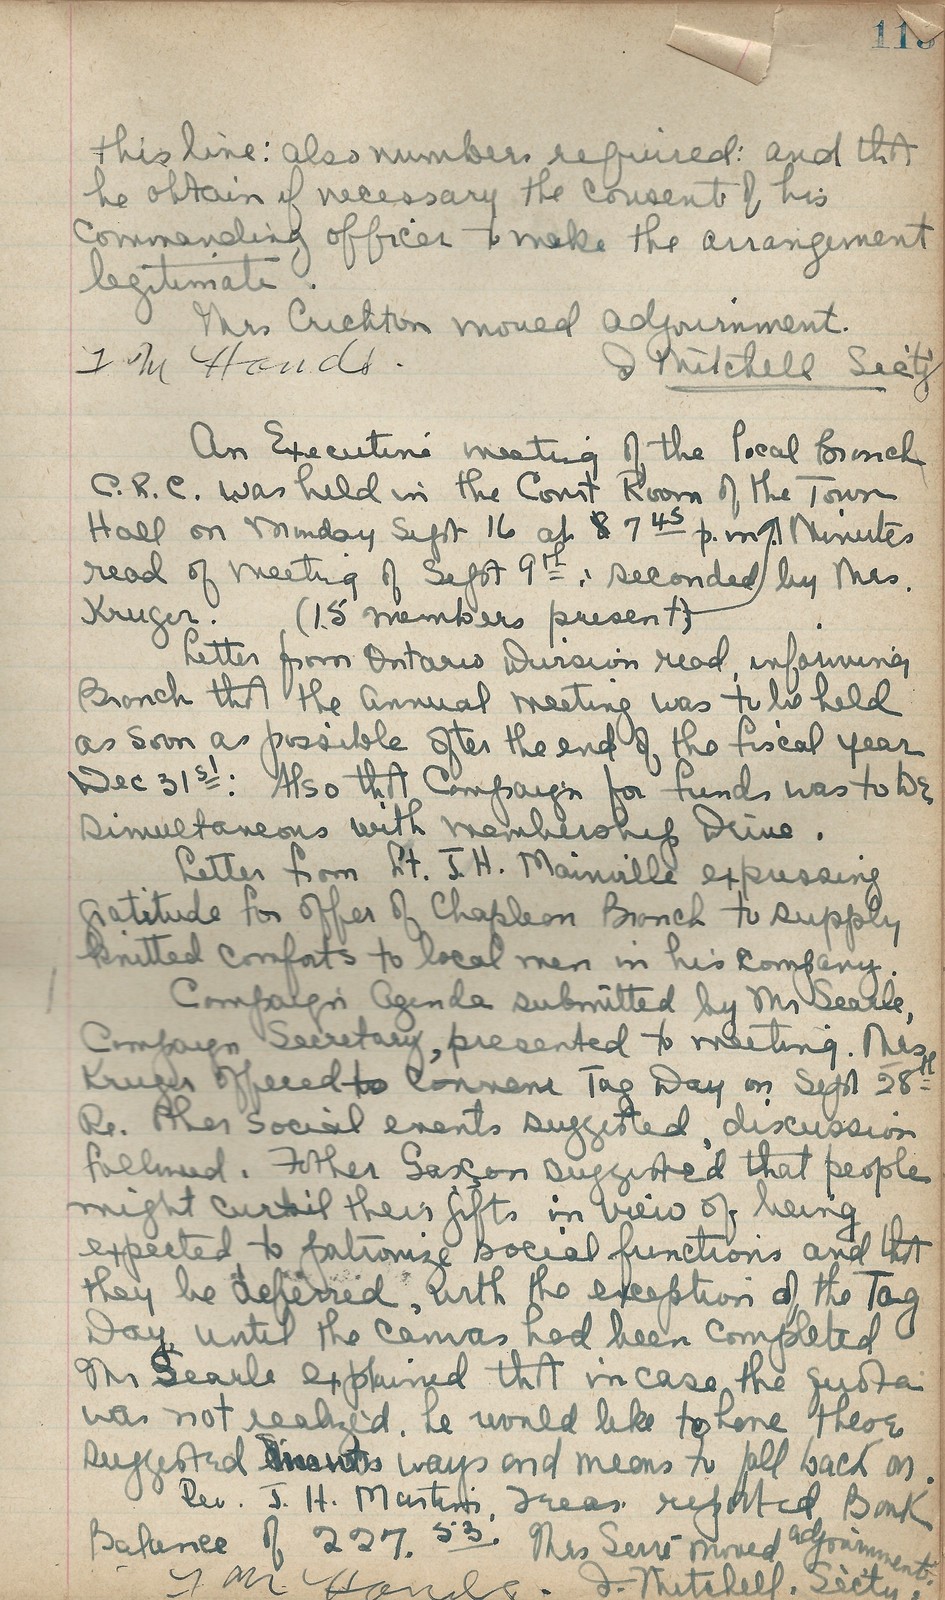 113
this line: also numbers required: and that
he obtain if necessary the consent of his
Commanding officer to make the arrangement
legitimate.
Mrs Crichton moved adjournment.
I M Hands. J Mitchell Sec'ty
An Executive meeting of the local Branch
C.R.C. was held in the Court Room of the Town
Hall on Monday Sept 16 at 7 45 p.m. Minutes
read of meeting of Sept 9th, seconded by Mrs.
Kruger. (15 members present)
Letter from Ontario Division read, informing
Branch that the annual meeting was to be held
as soon as possible after the end of the fiscal year
Dec 31st: Also that Campaign for funds was to be
simultaneous with membership Drive.
Letter from Lt. J.H. Mainville expressing
gratitude for offer of Chapleau Branch to supply
knitted comforts to local men in his company.
Campaign Agenda submitted by Mr Searle,
Campaign Secretary, presented to meeting. Mrs
Kruger offered to convene Tag Day on Sept 28th
Re. other social events suggested, discussion
followed. Father Gascon suggested that people
might curtail their gifts in view of being
expected to patronize social functions and that
they be deferred, with the exception of the Tag
Day until the canvas had been completed
Mr Searle explained that in case the quota
was not realized, he would like to have these
suggested ways and means to fall back on.
Rev. J. H. Martin, Treas. reported Bank
Balance of 227.53. Mrs Serré moved adjournment.
I M. Hands. J. Mitchell. Secty.